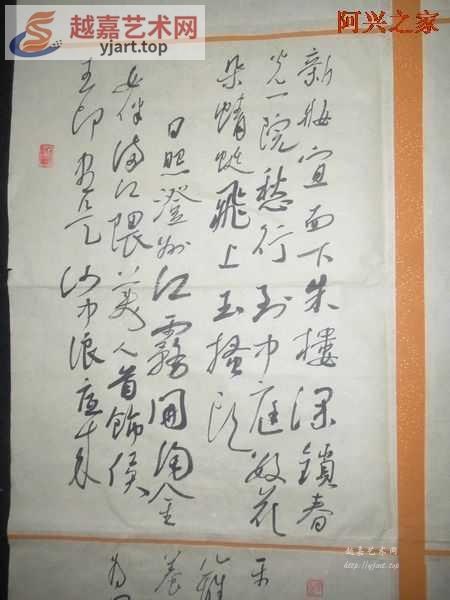 越嘉艺术网
yjart.net
阿兴之家
新妝宜面下朱樓深鎖春
光一院愁行到中庭数花
朵蜻蜓飛上玉搔头
日照澄洲江霧開淘金
女伴满江隈美人首飾侯
王印尽是沙中浪底来
越嘉艺术网
http://yjart.net